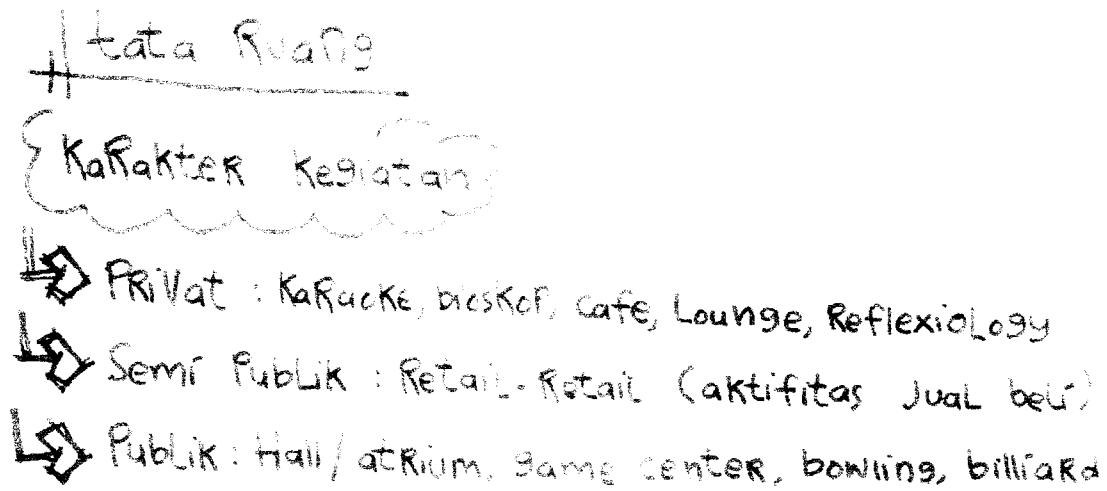 tata Ruang
Karakter kegiatan
PRiVat : KaRaoke, bioskop, cafe, Lounge, Reflexiology
Semi Publik : Retail-Retail (aktifitas Jual beli)
Publik : Hall/atRium, game center, bowling, billiard